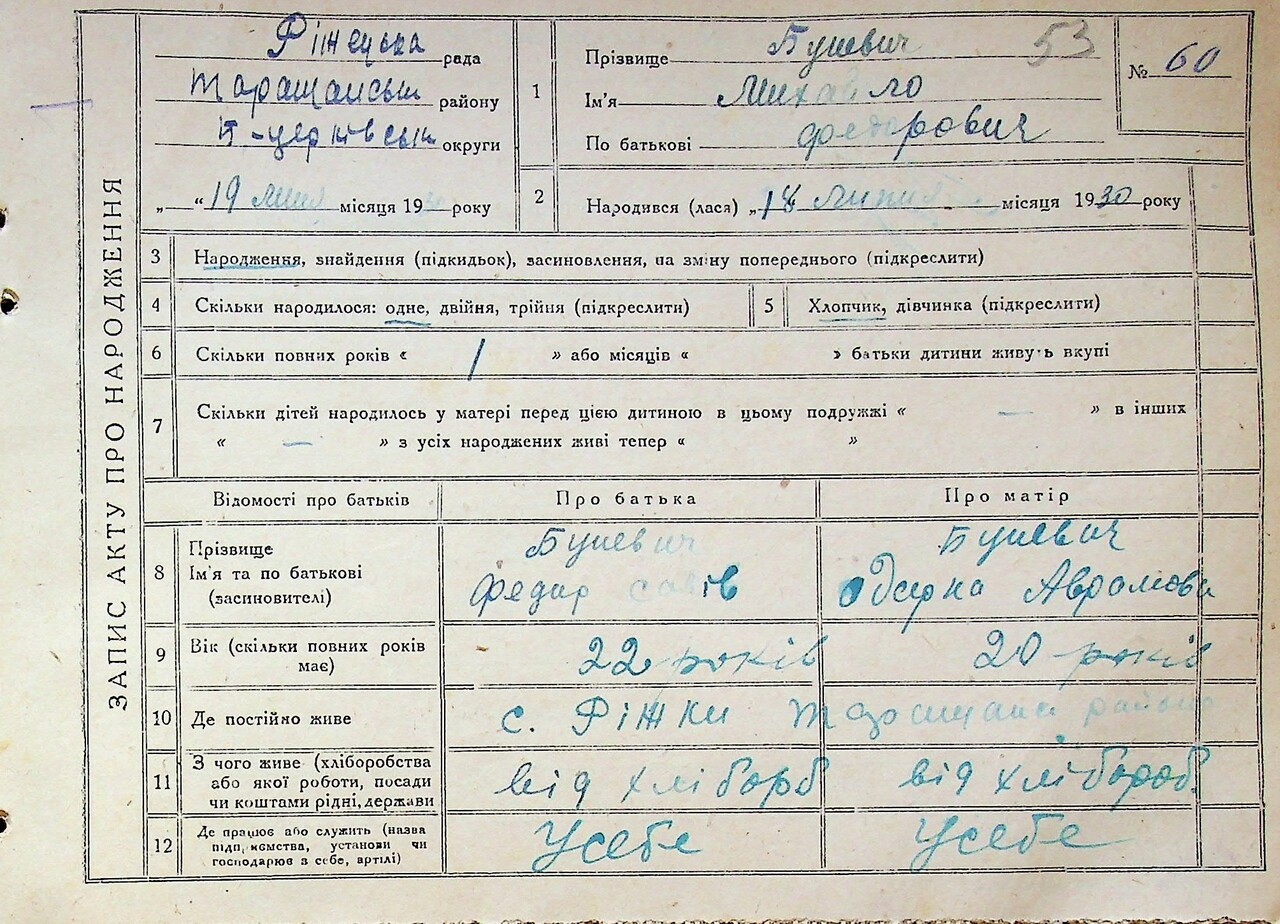 ЗАПИС АКТУ ПРО НАРОДЖЕННЯ
Ріжецька рада
району
округи
„ “ 19 місяця 1930 року
1
Прізвище Буневич 53
Ім'я Михайло
По батькові Федорович
№ 60
2
Народився (лася) „18 липня місяця 1930 року
3 Народження, знайдення (підкидьок), засиновлення, на зміну попереднього (підкреслити)
4 Скільки народилося: одне, двійня, трійня (підкреслити)
5 Хлопчик, дівчинка (підкреслити)
6 Скільки повних років « 1 » або місяців « » батьки дитини живуть вкупі
7 Скільки дітей народилось у матері перед цією дитиною в цьому подружжі « — » в інших
« — » з усіх народжених живі тепер « »
Відомості про батьків Про батька Про матір
8 Прізвище
Ім'я та по батькові
(засиновителі)
Буневич
Федир Савів
Буневич
Одарка Аврамови
9 Вік (скільки повних років
має)
22 років 20 років
10 Де постійно живе с. Ріжки району
11 З чого живе (хліборобства
або якої роботи, посади
чи коштами рідні, держави
від хліборб від хлібороб
12 Де працює або служить (назва
підприємства, установи чи
господарює з себе, артілі)
Усебе Усебе